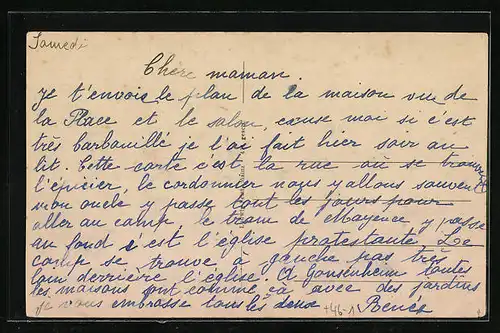 Samedi
Chère maman.
Je t'envois le plan de la maison vue de
la Place et le salon, excuse moi si c'est
très barbouillé je l'ai fait hier soir au
lit Cette carte c'est la rue où se trouve
l'épicier, le cordonnier nous y allons souvent
mon oncle y passe tout les jours pour
aller au camp le tram de Mayence y passe
au fond c'est l'église protestante Le
camp se trouve à gauche pas très
loin derrière l'église A Gonsenheim toutes
les maisons ont comme ça avec des jardins
je vous embrasse tous les deux